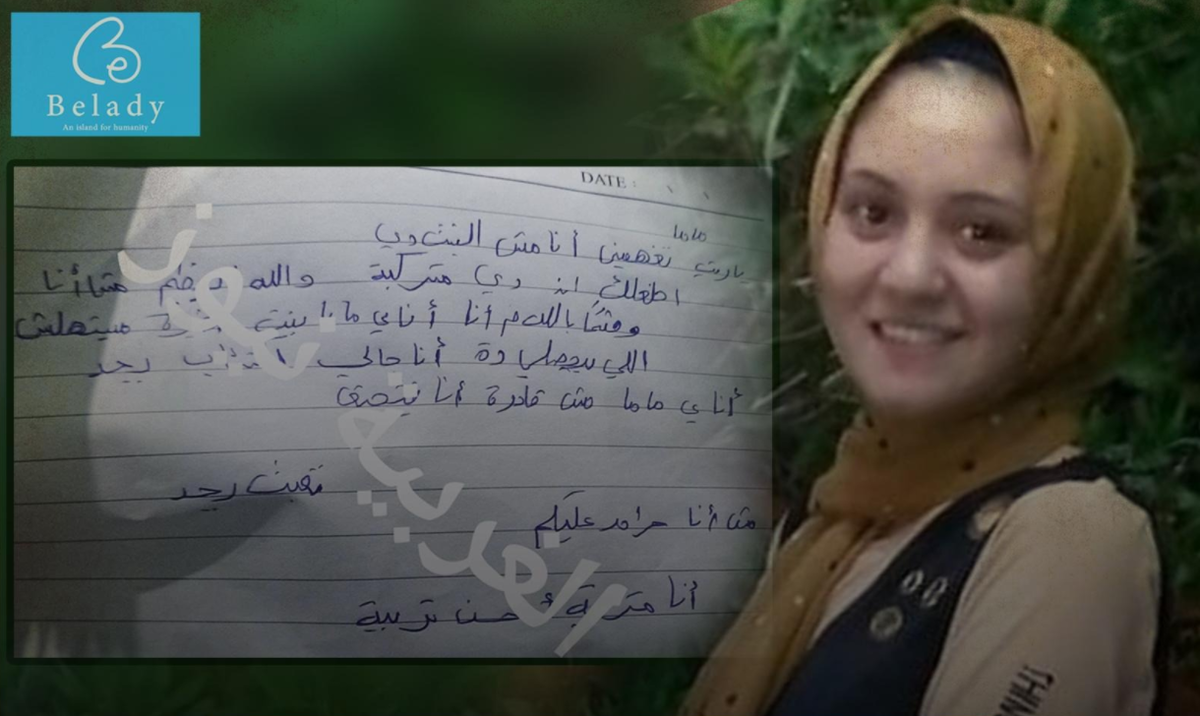 Belady
An island for humanity
DATE :
ماما
ياريت تفهميني أنا مش البنت دي
دي متركبة والله مش أنا
وقسمًا بالله م أنا أنا ي ماما بنت مبستهلش
اللي بيحصلي دة أنا جالي اكتئاب بجد
أنا ي ماما مش قادرة أنا بتخنق
تعبت بجد
مش أنا حرام عليكم
أنا متربية أحسن تربية